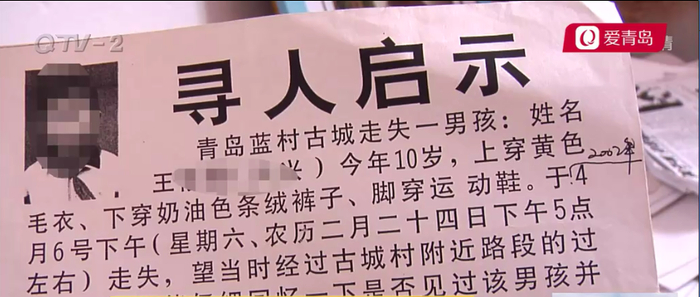 QTV-2
爱青岛
寻人启示
青岛蓝村古城走失一男孩:姓名
王 米)今年10岁,上穿黄色
2002年
毛衣、下穿奶油色条绒裤子、脚穿运 动鞋。于4
月6号下午(星期六、农历二月二十四日下午5点
左右)走失,望当时经过古城村附近路段的过
细回忆一下是否见过该男孩并